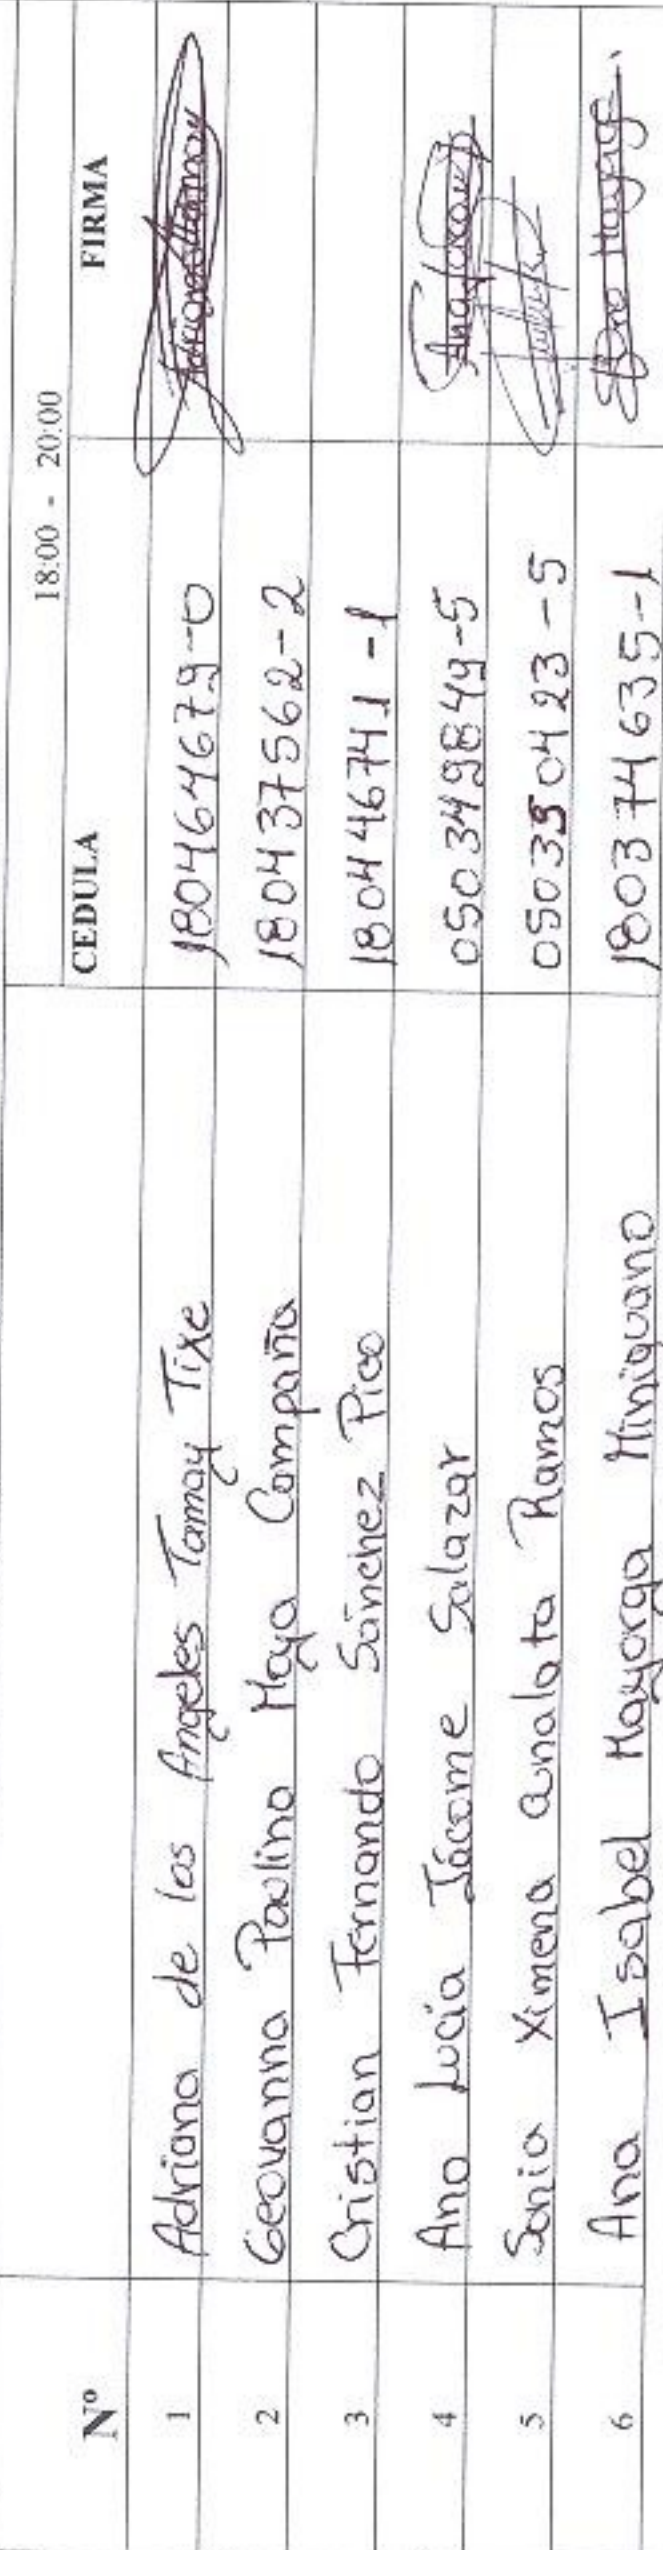 18:00 - 20:00
Nº CEDULA FIRMA
1 Adriana de los Angeles Tamay Tixe 180464679-0 Adriana Tamay
2 Geovanna Paulina Moya Campaña 180437562-2
3 Cristian Fernando Sánchez Pico 180446741-1
4 Ana Lucía Jácome Salazar 050349849-5
5 Sonia Ximena Qunalata Ramos 050350423-5
6 Ana Isabel Mayorga Miniguano 180374635-1